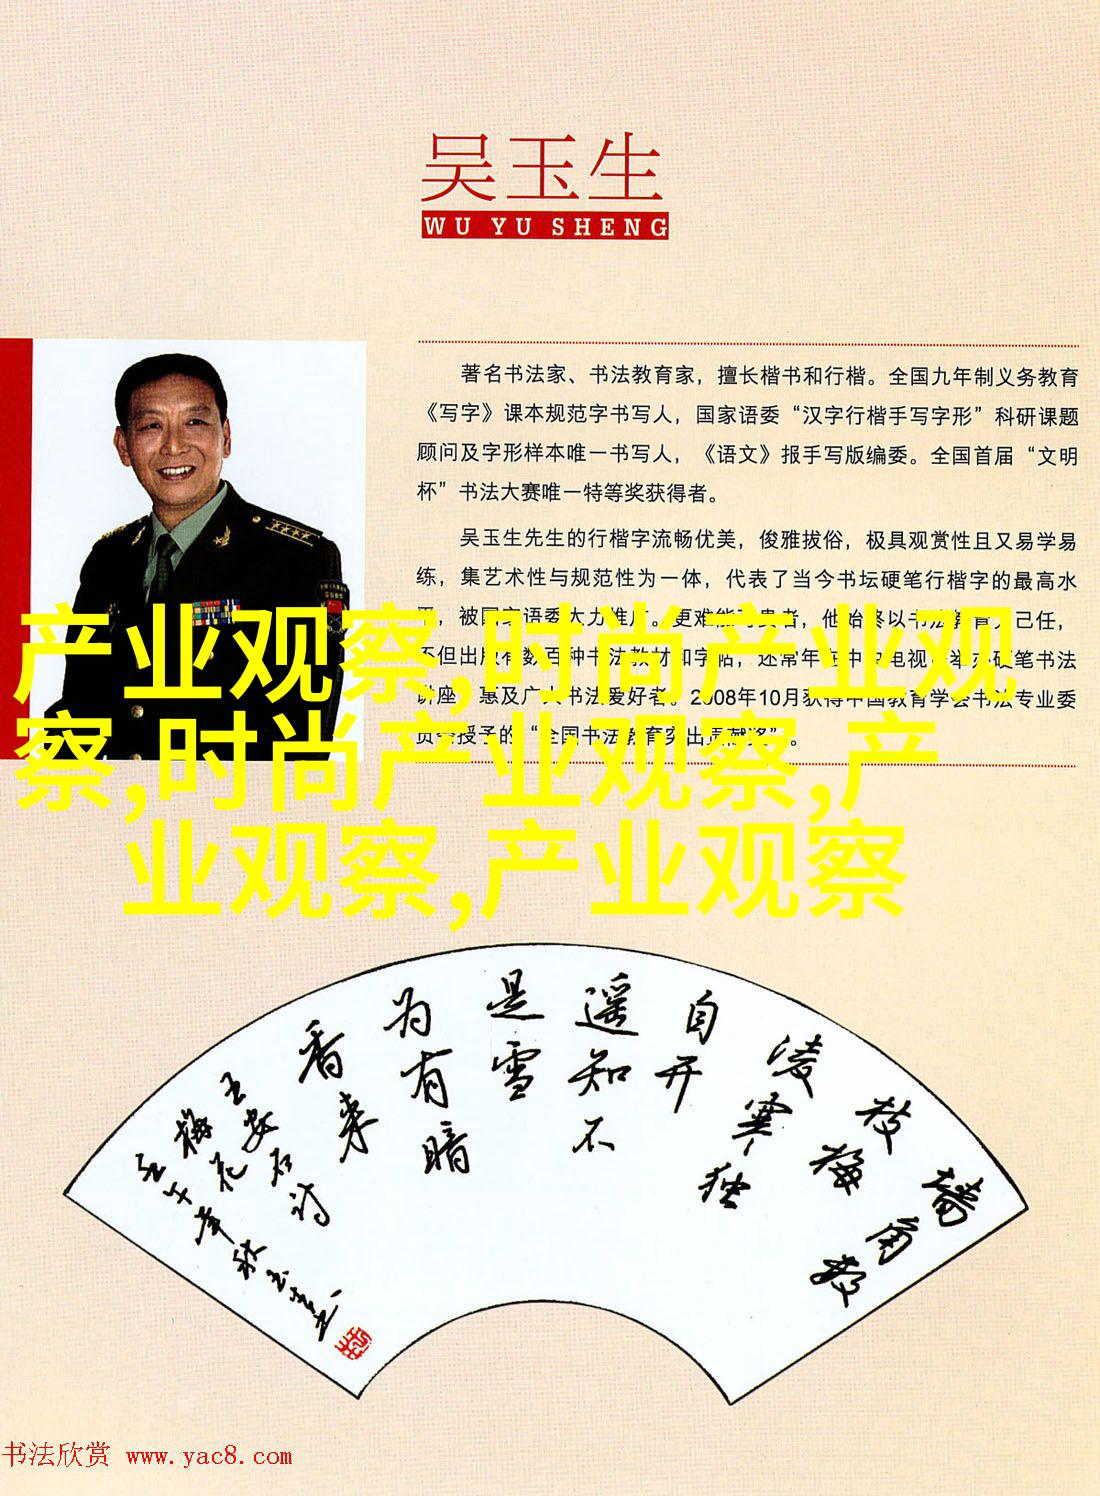 吴玉生
WU YU SHENG
著名书法家、书法教育家，擅长楷书和行楷。全国九年制义务教育
《写字》课本规范字书写人，国家语委“汉字行楷手写字形”科研课题
顾问及字形样本唯一书写人，《语文》报手写版编委。全国首届“文明
杯”书法大赛唯一特等奖获得者。
吴玉生先生的行楷字流畅优美，俊雅拔俗，极具观赏性且又易学易
练，集艺术性与规范性为一体，代表了当今书坛硬笔行楷字的最高水
，被国家语委大力推广。更难能可贵者，他始终以书法教育为己任，
不但出版有数百种书法教材和字帖，还常年在中央电视台举办硬笔书法
讲座，惠及广大书法爱好者。2008年10月获得中国教育学会书法专业委
员会授予的“全国书法教育突出贡献奖”。
产业观察,时尚产业观
察,时尚产业观察,产
业观察,产业观察
墙角数
枝梅
凌寒独
自开
遥知不
是雪
为有暗
香来
王安石诗
梅花
壬午年秋玉生书
书法欣赏 www.yac8.com